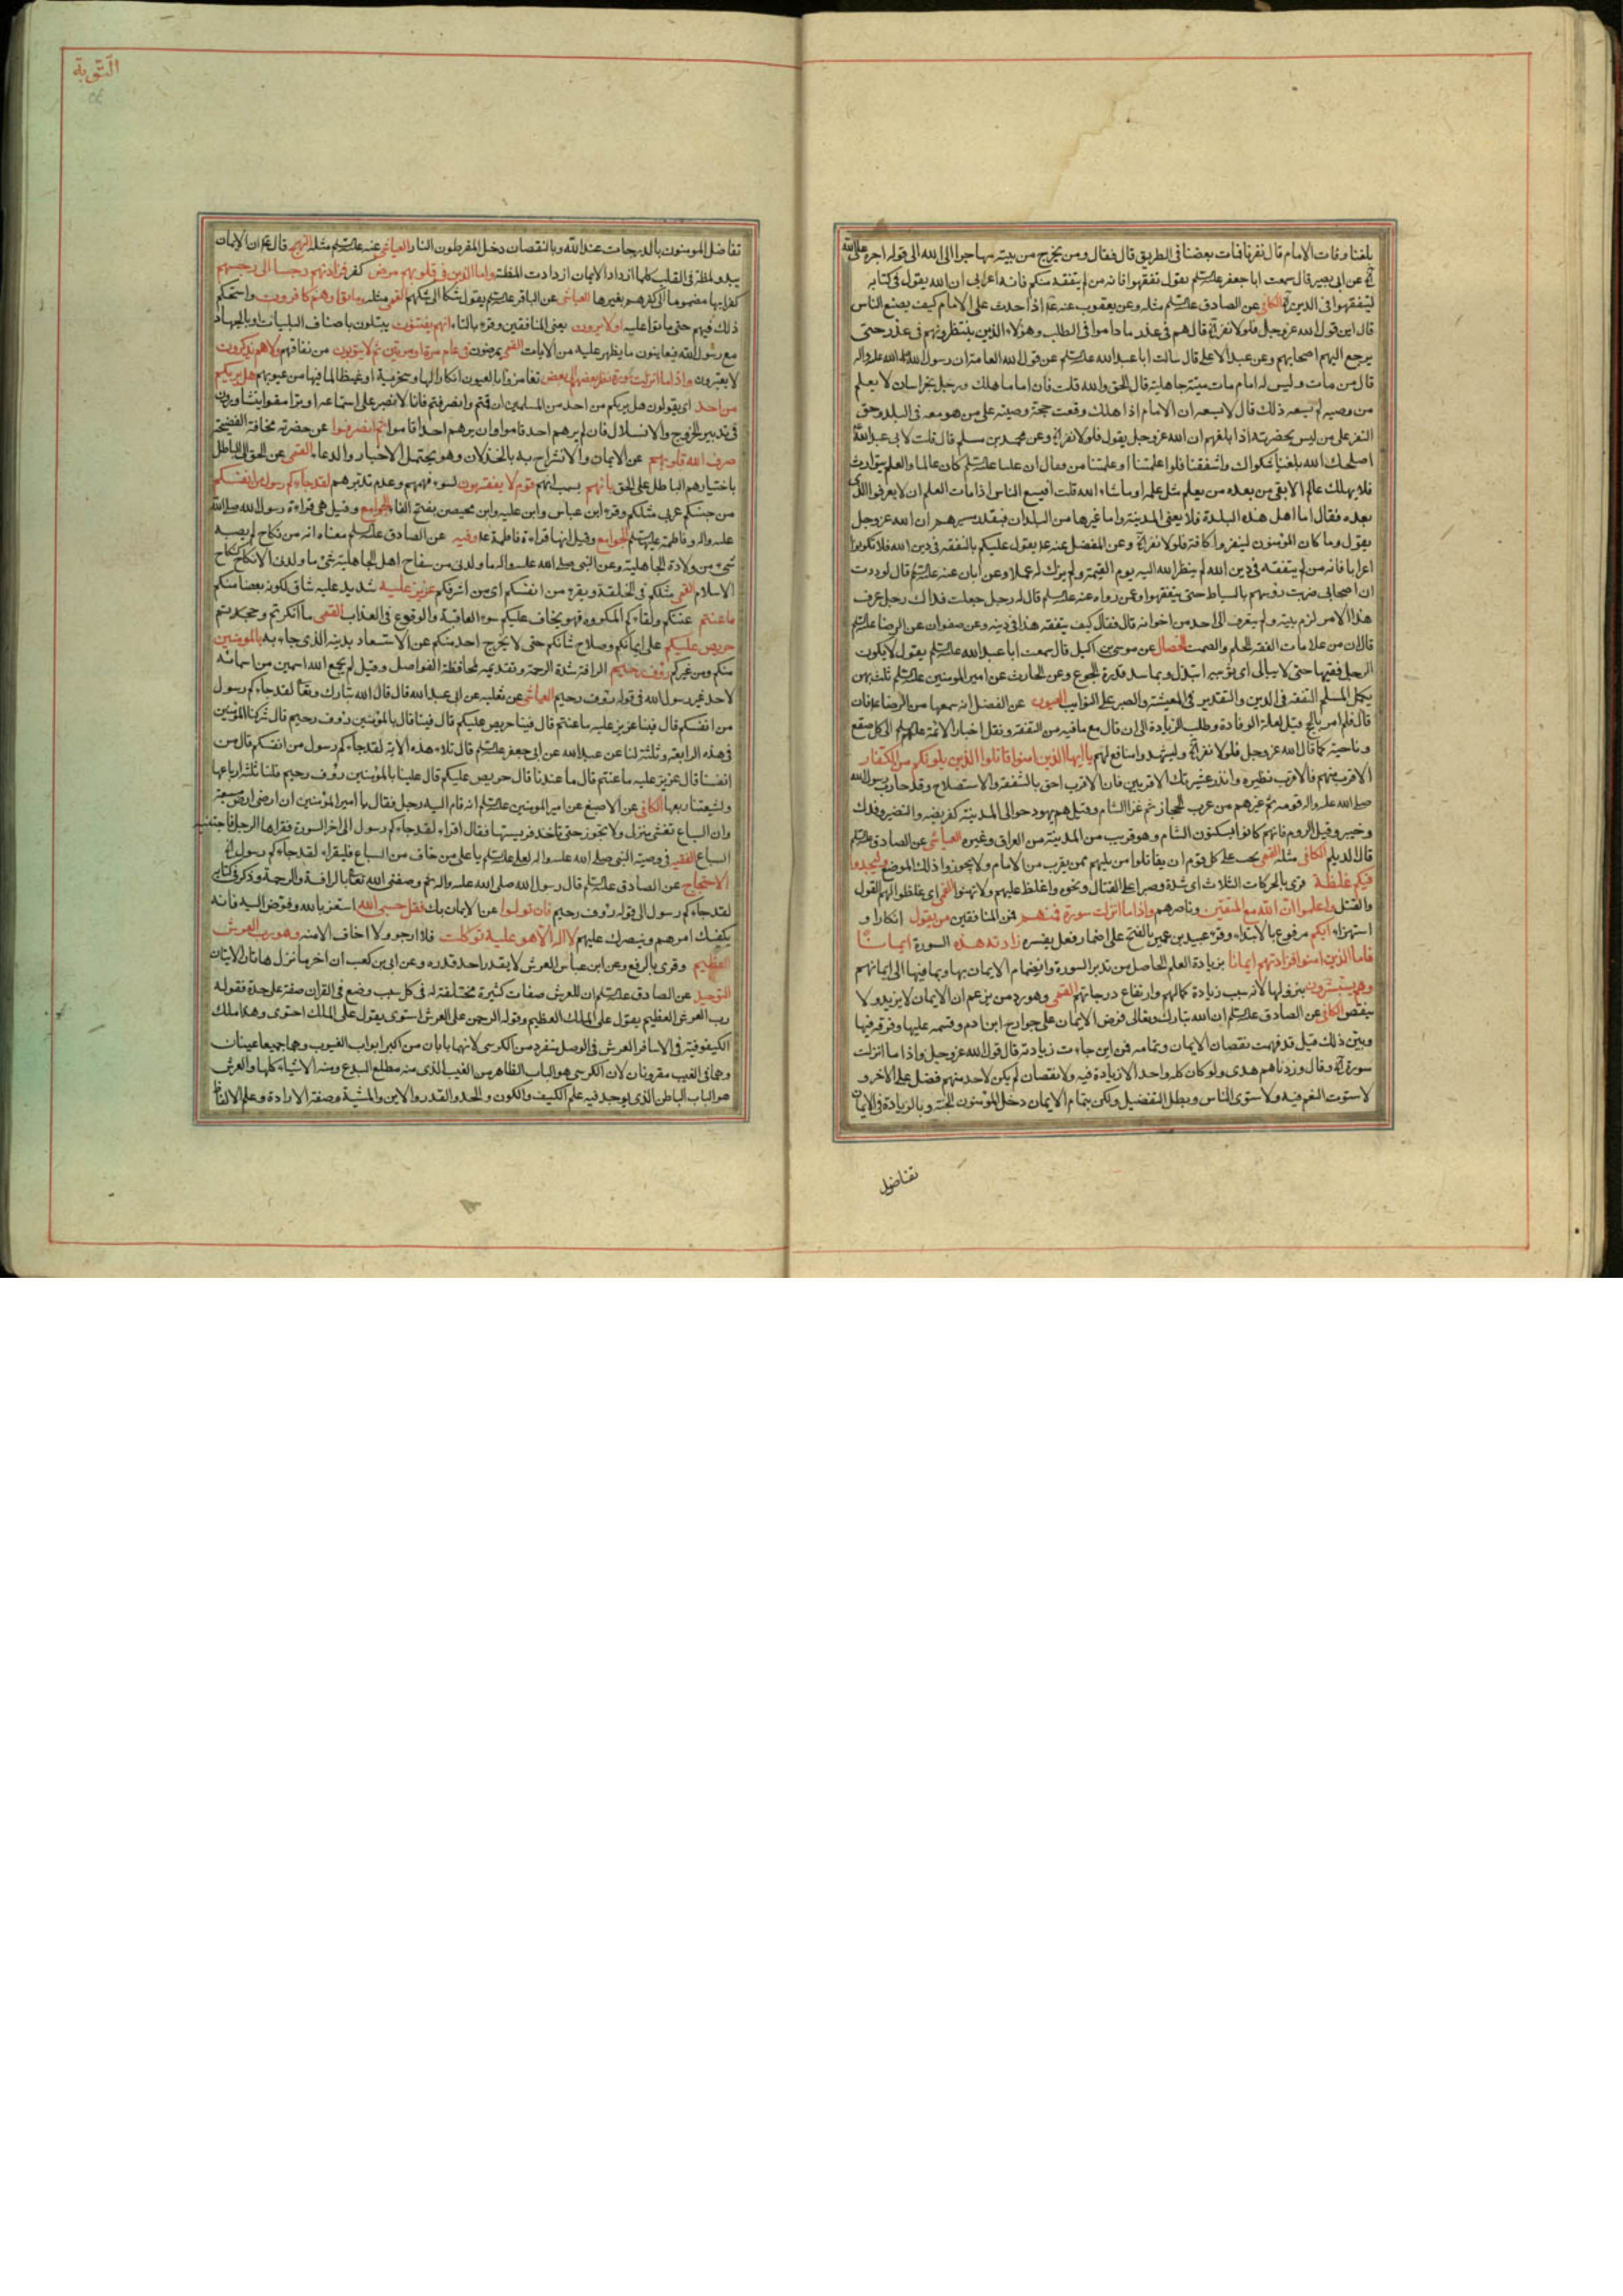 بلغنا وفات الامام قال نفرنا فمات بعضنا فى الطريق قال فقال ومن يخرج من بيته مهاجرا الى الله الى قوله اجره على الله
عن ابى بصير قال سمعت ابا جعفر يقول تفقهوا فانه من لم يتفقه منكم فانه اعرابى ان الله يقول فى كتابه
ليتفقهوا فى الدين الكافى عن الصادق مثله وعن يعقوب عنه اذا حدث على الامام كيف يصنع الناس
قال اين قول الله عز وجل فلولا نفر قال هم فى عذر ما داموا فى الطلب وهؤلاء الذين ينتظرونهم فى عذر حتى
يرجع اليهم اصحابهم وعن عبد الاعلى قال سالت ابا عبد الله عن قول الله العامة ان رسول الله صلى الله عليه واله
قال من مات وليس له امام مات ميتة جاهلية قال الحق والله قلت فان اماما هلك ورجل بخراسان لا يعلم
من وصيه لم يسعه ذلك قال لا يسعه ان الامام اذا هلك وقعت حجة وصيه على من هو معه فى البلد وحق
النفر على من ليس بحضرته اذا بلغهم ان الله عز وجل يقول فلولا نفر وعن محمد بن مسلم قال قلت لابى عبد الله
اصلحك الله بلغنا شكواك واشفقنا فلو اعلمتنا او علمتنا من فقال ان عليا كان عالما والعلم يتوارث
فلا يهلك عالم الا بقى من بعده من يعلم مثل علمه او ما شاء الله قلت افيسع الناس اذا مات العالم ان لا يعرفوا الذى
بعده فقال اما اهل هذه البلدة فلا يعنى المدينة واما غيرها من البلدان فبقدر مسيرهم ان الله عز وجل
يقول وما كان المؤمنون لينفروا كافة فلولا نفر وعن المفضل عنه يقول عليكم بالتفقه فى دين الله فلا تكونوا
اعرابا فانه من لم يتفقه فى دين الله لم ينظر الله اليه يوم القيمة ولم يزك له عملا وعن ابان عنه قال لوددت
ان اصحابى ضربت رؤسهم بالسياط حتى يتفقهوا وعن رواه عنه قال له رجل جعلت فداك رجل عرف
هذا الامر لزم بيته ولم يتعرف الى احد من اخوانه قال فقال كيف يتفقه هذا فى دينه وعن صفوان عن الرضا
قال ان من علامات الفقه الحلم والصمت الخصال عن موسى بن اكيل قال سمعت ابا عبد الله يقول لا يكون
الرجل فقيها حتى لا يبالى اى ثوبيه ابتذل وبما سد فورة الجوع وعن الحارث عن امير المؤمنين ثلث بهن
يكمل المسلم التفقه فى الدين والتقدير فى المعيشة والصبر على النوائب العيون عن الفضل انه سمعها من الرضا فان
قال فلم امر بالحج قيل لعلة الوفادة وطلب الزيادة الى ان قال مع ما فيه من التفقه ونقل اخبار الائمة الى كل صقع
وناحية كما قال الله عز وجل فلولا نفر وليشهدوا منافع لهم يا ايها الذين امنوا قاتلوا الذين يلونكم من الكفار
الاقرب منهم فالاقرب نظيره وانذر عشيرتك الاقربين فان الاقرب احق بالشفقة والاستصلاح وقد حارب رسول الله
صلى الله عليه واله قومه ثم غيرهم من عرب الحجاز ثم غزا الشام وقيل هم يهود حوالى المدينة كقريضه والنضير وفدك
وخيبر وقيل الروم فانهم كانوا يسكنون الشام وهو قريب من المدينة من العراق وغيره العياشى عن الصادق
قال الديلم الكافى مثله القمى يجب على كل قوم ان يقاتلوا من يليهم ممن يقرب من الامام ولا يجوزوا ذلك الموضع وليجدوا
فيكم غلظة قرئ بالحركات الثلاث اى شدة وصبرا على القتال ونحوه واغلظ عليهم ولا تهنوا القمى اى غلظوا لهم القول
والقتل واعلموا ان الله مع المتقين وناصرهم واذا ما انزلت سورة فمنهم فمن المنافقين من يقول انكارا و
استهزاء ايكم مرفوع بالابتداء وقرء عبيد بن عمير بالفتح على اضمار فعل يفسره زادته هذه السورة ايمانا
فاما الذين امنوا فزادتهم ايمانا بزيادة العلم الحاصل من تدبر السورة وانضمام الايمان بها وبما فيها الى ايمانهم
وهم يستبشرون بنزولها لانه سبب زيادة كمالهم وارتفاع درجاتهم القمى وهو رد من يزعم ان الايمان لا يزيد ولا
ينقص الكافى عن الصادق ان الله تبارك وتعالى فرض الايمان على جوارح ابن ادم وقسمه عليها وفرقه فيها
وبين ذلك قيل قد فهمت نقصان الايمان وتمامه فمن اين جاءت زيادته قال قول الله عز وجل واذا ما انزلت
سورة وقال وزدناهم هدى ولو كان كله واحد لا زيادة فيه ولا نقصان لم يكن لاحد منهم فضل على الاخر و
لاستوت النعم فيه ولاستوى الناس وبطل التفضيل ولكن بتمام الايمان دخل المؤمنون الجنة وبالزيادة فى الايمان
تفاضل
التوبة
تفاضل المومنون بالدرجات عند الله وبالنقصان دخل المفرطون النار العياشى عنه مثله النهج قال ان الايمان
يبدو لمظة فى القلب كلما ازداد الايمان ازدادت اللمظة واما الذين فى قلوبهم مرض كفر فزادتهم رجسا الى رجسهم
كفرا بها مضموما الى كفرهم بغيرها العياشى عن الباقر يقول شكا الى شكهم القمى مثله وماتوا وهم كافرون واستحكم
ذلك فيهم حتى ماتوا عليه اولا يرون يعنى المنافقين وقرء بالتاء انهم يفتنون يبتلون باصناف البليات وبالجهاد
مع رسول الله فيعاينون ما يظهر عليه من الايات القمى يمرضون فى عام مرة او مرتين ثم لا يتوبون من نفاقهم ولا هم يذكرون
لا يعتبرون واذا ما انزلت سورة نظر بعضهم الى بعض تغامزوا بالعيون انكارا لها وسخرية او غيظا لما فيها من عيوبهم هل يريكم
من احد اى يقولون هل يريكم من احد من المسلمين ان قمتم وانصرفتم فانا لا نصبر على استماعه او ترامقوا يتشاورون
فى تدبير الخروج والانسلال فان لم يرهم احد قاموا وان يرهم احد اقاموا ثم انصرفوا عن حضرته مخافة الفضيحة
صرف الله قلوبهم عن الايمان والانشراح به بالخذلان وهو يحتمل الاخبار والدعاء القمى عن الحق الى الباطل
باختيارهم الباطل على الحق بانهم بسبب انهم قوم لا يفقهون لسوء فهمهم وعدم تدبرهم لقد جاءكم رسول من انفسكم
من جنسكم عربى مثلكم وقرء ابن عباس وابن علية وابن محيصن بفتح الفاء الجوامع وقيل هى قراءة رسول الله صلى الله
عليه واله وفاطمة الجوامع وقيل انها قراءة فاطمة وفيه عن الصادق معناه انه من نكاح لم يصبه
شىء من ولادة الجاهلية وعن النبى صلى الله عليه واله ما ولدنى من سفاح اهل الجاهلية شىء ما ولدنى الا نكاح كنكاح
الاسلام القمى مثلكم فى الخلقة ويقرء من انفسكم اى من اشرفكم عزيز عليه شديد عليه شاق لكونه بعضا منكم
ما عنتم عنتكم ولقاءكم المكروه فهو يخاف عليكم سوء العاقبة والوقوع فى العذاب القمى ما انكرتم وجحدتم
حريص عليكم على ايمانكم وصلاح شانكم حتى لا يخرج احد منكم عن الاستسعاد بدينه الذى جاء به بالمومنين
منكم ومن غيركم رؤف رحيم الرافة شدة الرحمة وتقديمه لمحافظة الفواصل وقيل لم يجمع الله اسمين من اسمائه
لاحد غير رسول الله فى قوله رؤف رحيم العياشى عن ثعلبه عن ابى عبد الله قال قال الله تبارك وتعالى لقد جاءكم رسول
من انفسكم قال فينا عزيز عليه ما عنتم قال فينا حريص عليكم قال فينا قال بالمؤمنين رؤف رحيم قال شركنا المؤمنين
فى هذه الرابعة وثلثة لنا عن عبد الله عن ابى جعفر قال تلا هذه الاية لقد جاءكم رسول من انفسكم قال من
انفسنا قال عزيز عليه ما عنتم قال ما عندنا قال حريص عليكم قال علينا بالمؤمنين رؤف رحيم فلنا ثلثة ارباعها
ولشيعتنا ربعها الكافى عن الاصبغ عن امير المومنين انه قام اليه رجل فقال يا امير المؤمنين ان ارضى ارض مسبعة
وان السباع تغشى منزلى ولا تجوز حتى تاخذ فريستها فقال اقراء لقد جاءكم رسول الى اخر السورة فقراها الرجل فاجتنبته
السباع الفقيه فى وصية النبى صلى الله عليه واله لعلى يا على من خاف من السباع فليقراء لقد جاءكم رسول
الاحتجاج عن الصادق قال رسول الله صلى الله عليه واله وصفنى الله تعالى بالرافة والرحمة وذكر فى كتابه
لقد جاءكم رسول الى قوله رؤف رحيم فان تولوا عن الايمان بك فقل حسبى الله استعز بالله وفوض اليه فانه
يكفيك امرهم وينصرك عليهم لا اله الا هو عليه توكلت فلا ارجو ولا اخاف الا منه وهو رب العرش
العظيم وقرى بالرفع وعن ابن عباس العرش لا يقدر احد قدره وعن ابى بن كعب ان اخر ما نزل هاتان الايتان
التوحيد عن الصادق ان للعرش صفات كثيرة مختلفة له فى كل سبب وضع فى القران صفة على حدة فقوله
رب العرش العظيم يقول على الملك العظيم وقوله الرحمن على العرش استوى يقول على الملك احتوى وهكذا ملك
الكيفوفية فى الاسافر العرش فى الوصل منفرد من الكرسى لانهما بابان من اكبر ابواب الغيوب وهما جميعا غيبان
وهما فى الغيب مقرونان لان الكرسى هو الباب الظاهر من الغيب الذى منه مطلع البدع ومنه الاشياء كلها والعرش
هو الباب الباطن الذى يوجد فيه علم الكيف والكون والحد والقدر والاين والمشية وصفة الارادة وعلم الالفاظ